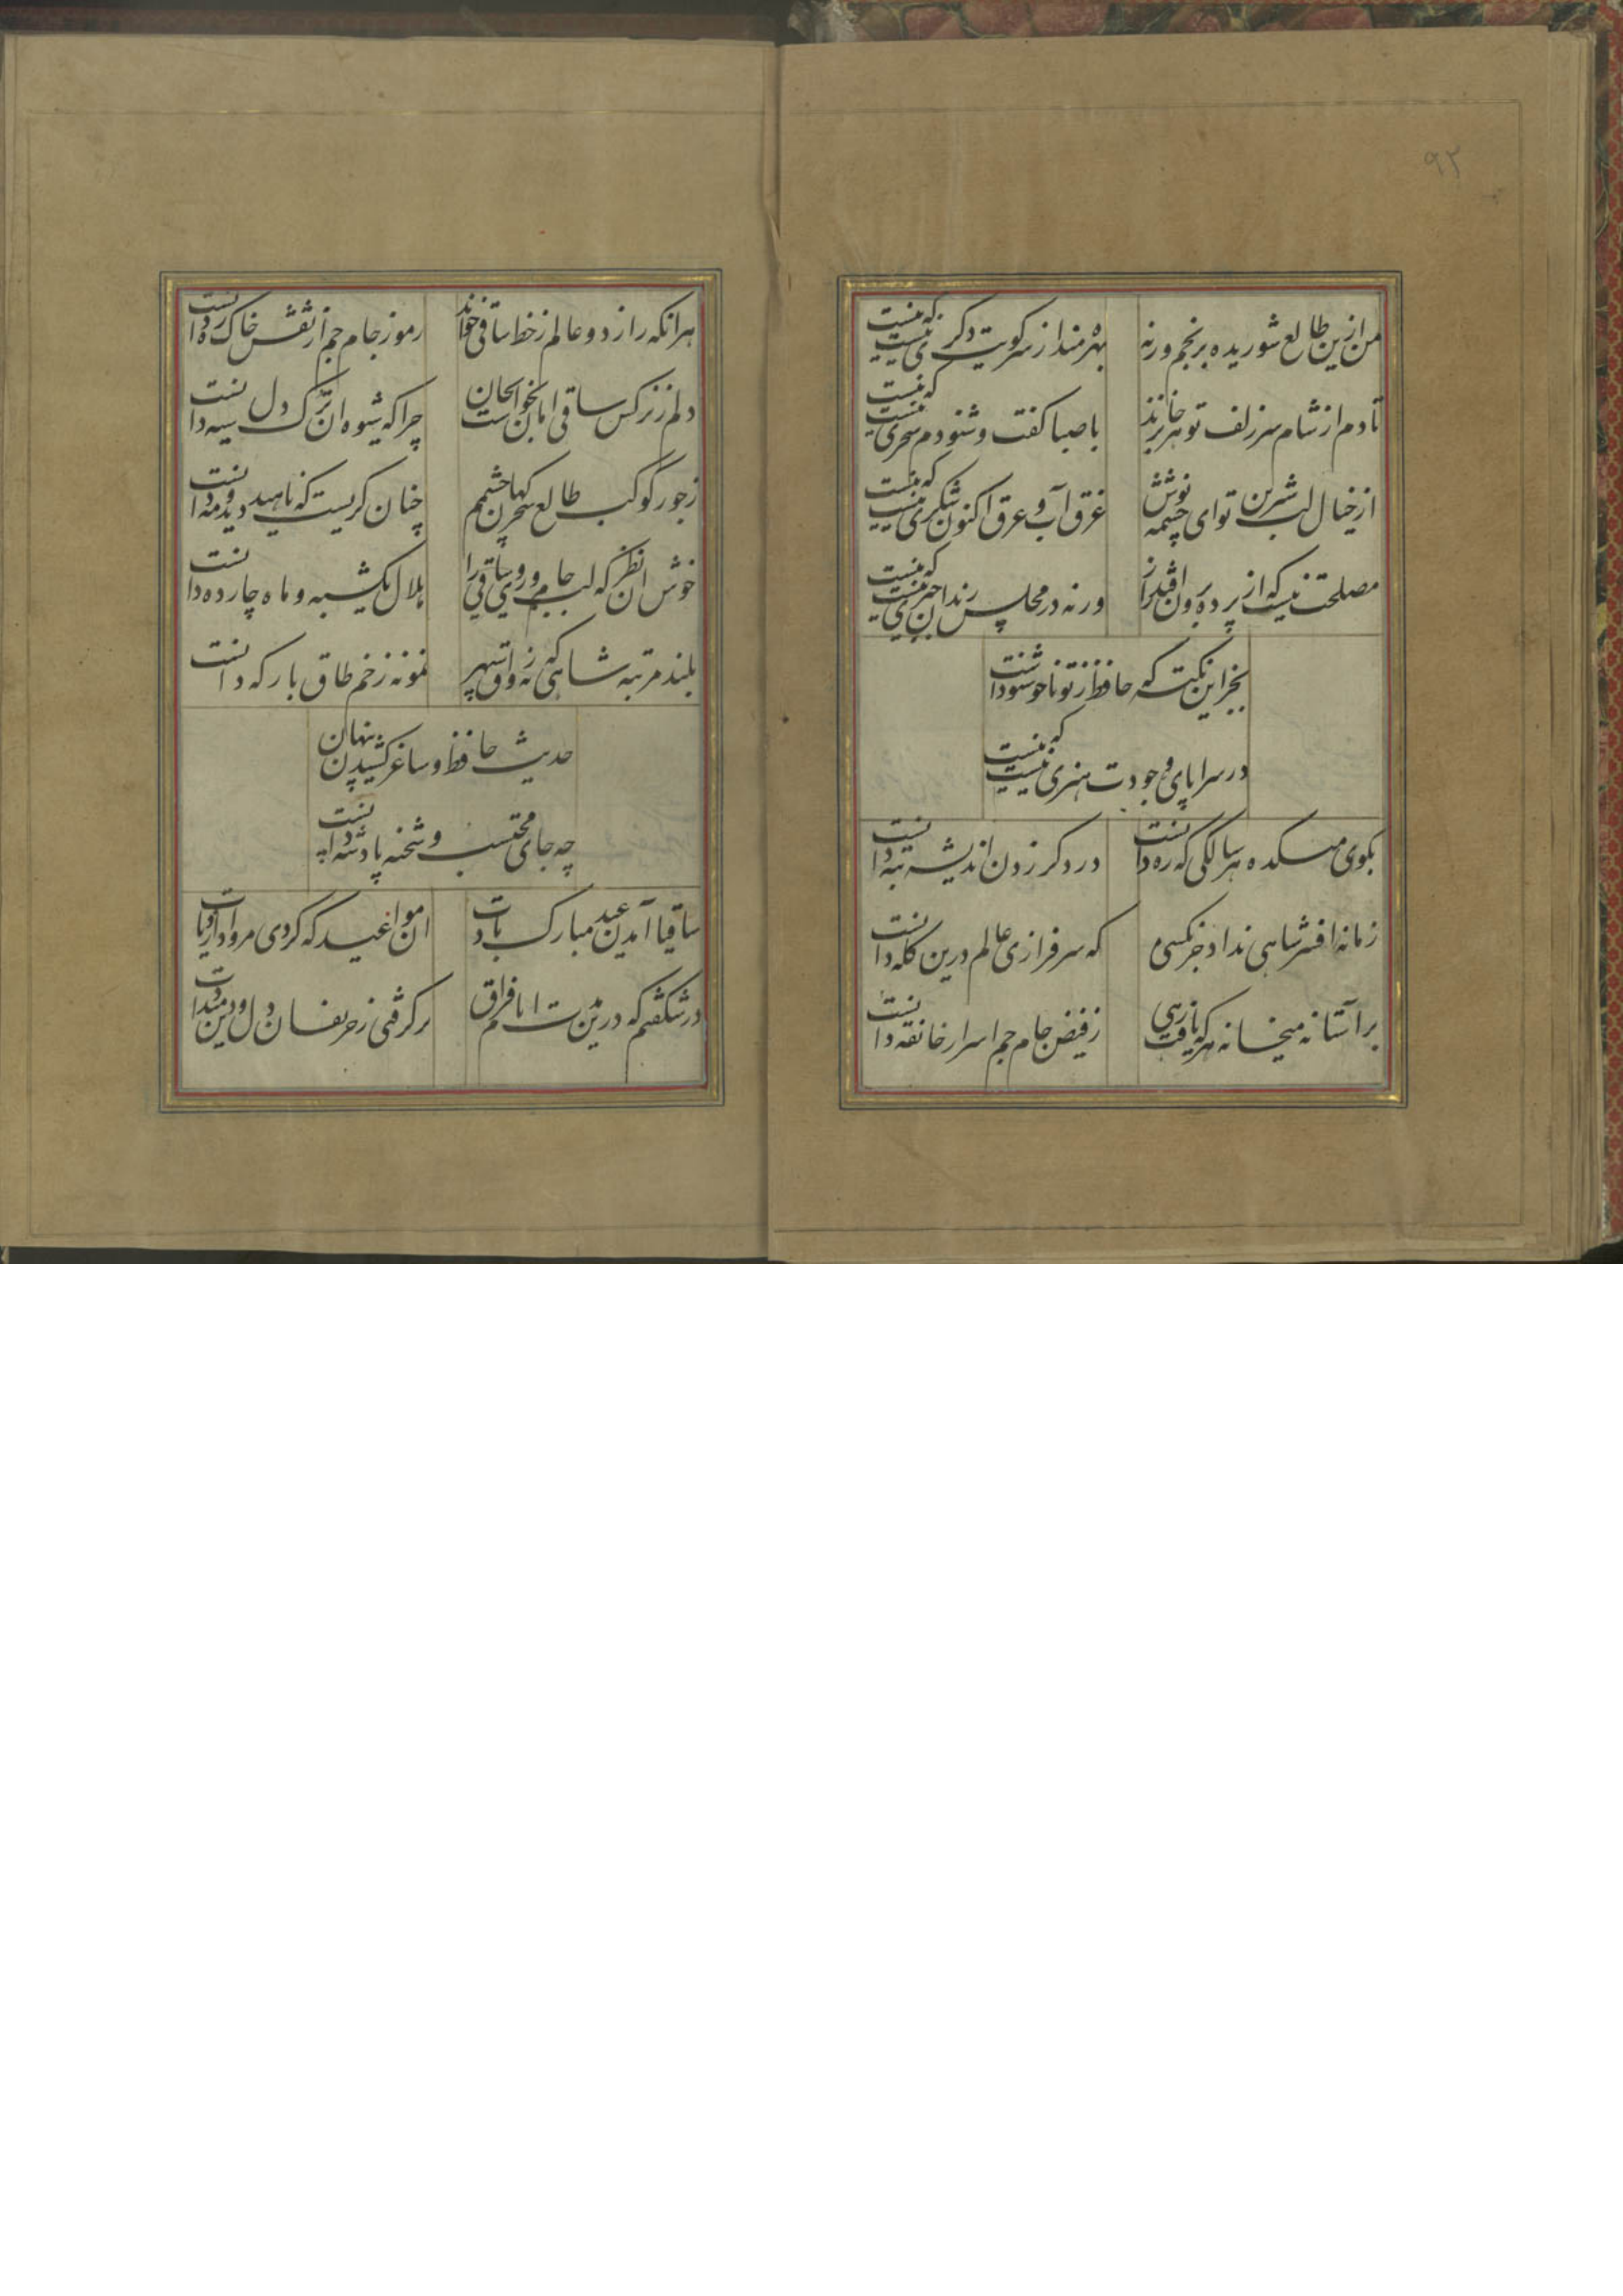 ۹۲
من ازین طالع شوریده برنجم ورنه
بهره مند از سر کویت دگری نیست که نیست
تا دم از شام سر زلف تو هر جا نزنند
با صبا گفت و شنودم سحری نیست که نیست
از خیال لب شیرین تو ای چشمه نوش
غرق آب و عرق اکنون شکری نیست که نیست
مصلحت نیست که از پرده برون افتد راز
ورنه در مجلس رندان خبری نیست که نیست
بجز این نکته که حافظ ز تو ناخوشنودست
در سراپای وجودت هنری نیست که نیست
بکوی میکده هر سالکی که ره دانست
در دگر زدن اندیشه تبه دانست
زمانه افسر شاهی نداد جز بکسی
که سرفرازی عالم درین کله دانست
بر آستانه میخانه هر که یافت رهی
ز فیض جام جم اسرار خانقه دانست
هر آنکه راز دو عالم ز خط ساقی خواند
رموز جام جم از نقش خاک ره دانست
دلم ز نرگس ساقی امان نخواست بجان
چرا که شیوه آن ترک دل سیه دانست
ز جور کوکب طالع سحرگهان چشمم
چنان گریست که ناهید دید و مه دانست
خوش آن نظر که لب جام و روی ساقی را
هلال یکشبه و ماه چارده دانست
بلند مرتبه شاهی که نه رواق سپهر
نمونه ز خم طاق بارگه دانست
حدیث حافظ و ساغر کشیدن پنهان
چه جای محتسب و شحنه پادشه دانست
ساقیا آمدن عید مبارک بادت
آن مواعید که کردی مرواد از یادت
در شگفتم که درین مدت ایام فراق
برگرفتی ز حریفان دل و دل میدادت